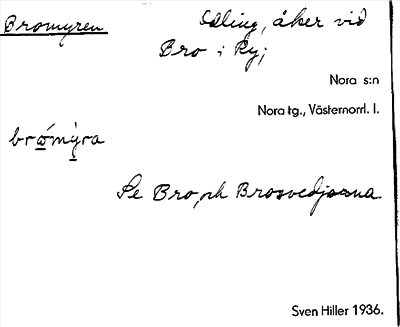 Bromyren
Sæling, åker vid
Bro i Ry;
Nora s:n
Nora tg., Västernorrl. l.
brómỳra
Se Bro, och Brosvedjorna.
Sven Hiller 1936.